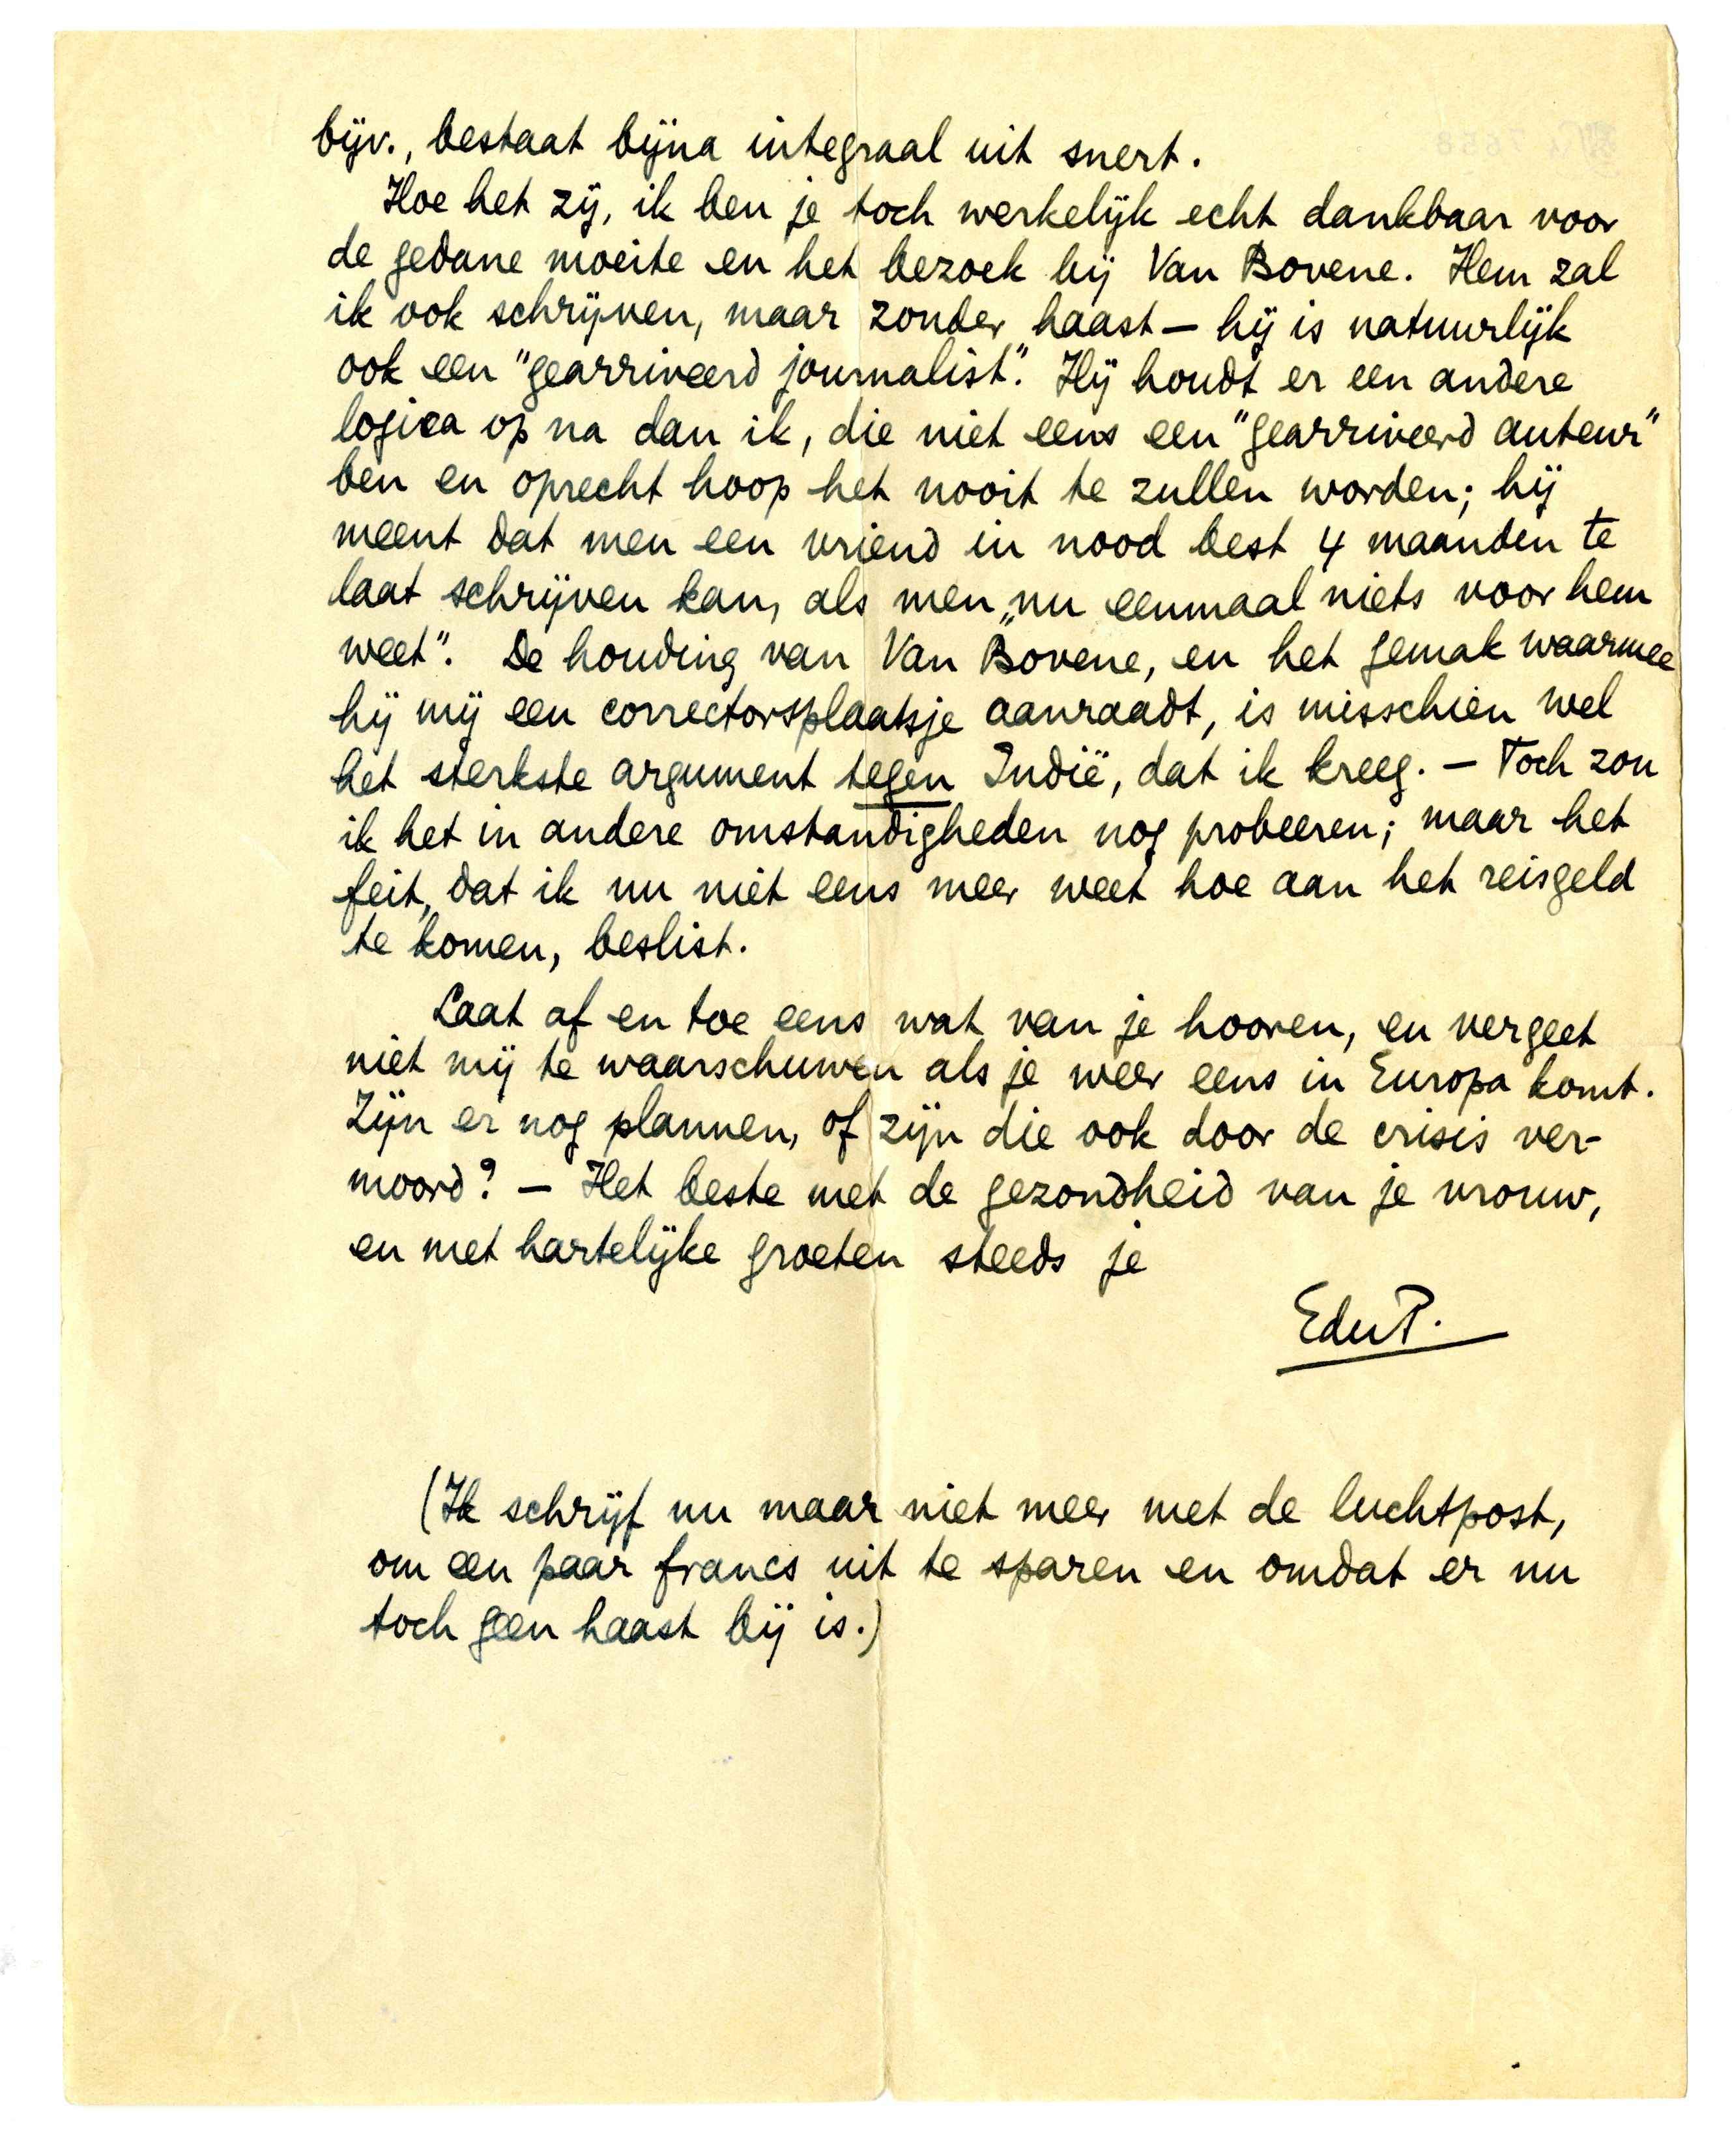 bijv., bestaat bijna integraal uit snert.
Hoe het zij, ik ben je toch werkelijk echt dankbaar voor
de gedane moeite en het bezoek bij Van Bovene. Hem zal
ik ook schrijven, maar zonder haast — hij is natuurlijk
ook een "gearriveerd journalist". Hij houdt er een andere
logica op na dan ik, die niet eens een "gearriveerd auteur"
ben en oprecht hoop het nooit te zullen worden; hij
meent dat men een vriend in nood best 4 maanden te
laat schrijven kan, als men „nu eenmaal niets voor hem
weet". De houding van Van Bovene, en het gemak waarmee
hij mij een correctorsplaatsje aanraadt, is misschien wel
het sterkste argument tegen Indië, dat ik kreeg. — Toch zou
ik het in andere omstandigheden nog probeeren; maar het
feit, dat ik nu niet eens meer weet hoe aan het reisgeld
te komen, beslist.
Laat af en toe eens wat van je hooren, en vergeet
niet mij te waarschuwen als je weer eens in Europa komt.
Zijn er nog plannen, of zijn die ook door de crisis ver-
moord? — Het beste met de gezondheid van je vrouw,
en met hartelijke groeten steeds je
EduP.
(Ik schrijf nu maar niet meer met de luchtpost,
om een paar francs uit te sparen en omdat er nu
toch geen haast bij is.)